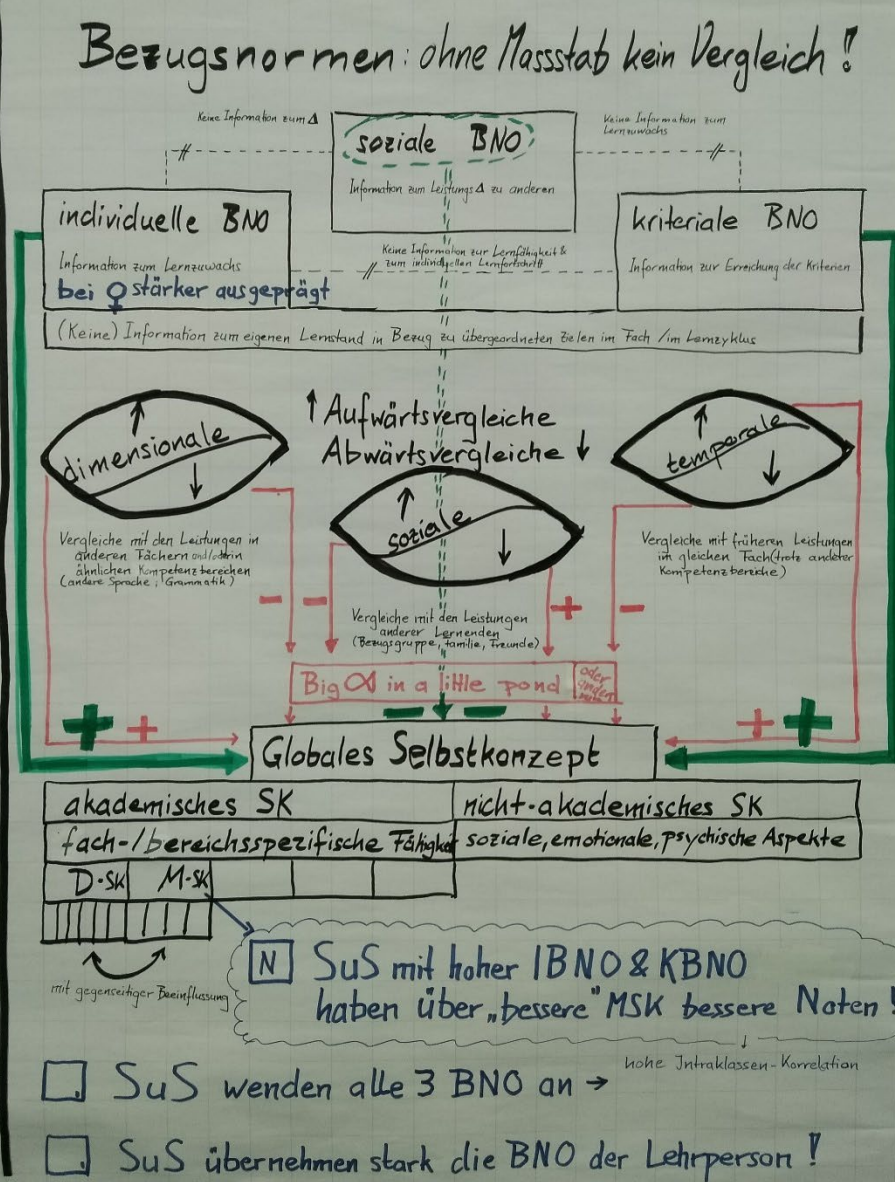 Bezugsnormen: ohne Massstab kein Vergleich!
Keine Information zum Δ
Keine Information zum
Lernzuwachs
soziale BNO
Information zum LeistungsΔ zu anderen
individuelle BNO
Information zum Lernzuwachs
bei ♀ stärker ausgeprägt
Keine Information zur Lernfähigkeit &
zum individuellen Lernfortschritt
kriteriale BNO
Information zur Erreichung der Kriterien
(Keine) Information zum eigenen Lernstand in Bezug zu übergeordneten Zielen im Fach / im Lernzyklus
dimensionale
↑ Aufwärtsvergleiche
Abwärtsvergleiche ↓
soziale
temporale
Vergleiche mit den Leistungen in
anderen Fächern und/oder in
ähnlichen Kompetenzbereichen
(andere Sprache, Grammatik)
Vergleiche mit den Leistungen
anderer Lernenden
(Bezugsgruppe, Familie, Freunde)
Vergleiche mit früheren Leistungen
im gleichen Fach (trotz anderer
Kompetenzbereiche)
− − + −
Big in a little pond
oder
+ + − − + +
Globales Selbstkonzept
akademisches SK
nicht-akademisches SK
fach-/bereichsspezifische Fähigkeit
soziale, emotionale, psychische Aspekte
D-SK M-SK
mit gegenseitiger Beeinflussung
N SuS mit hoher IBNO & KBNO
haben über „bessere" MSK bessere Noten!
hohe Intraklassen-Korrelation
SuS wenden alle 3 BNO an →
SuS übernehmen stark die BNO der Lehrperson!